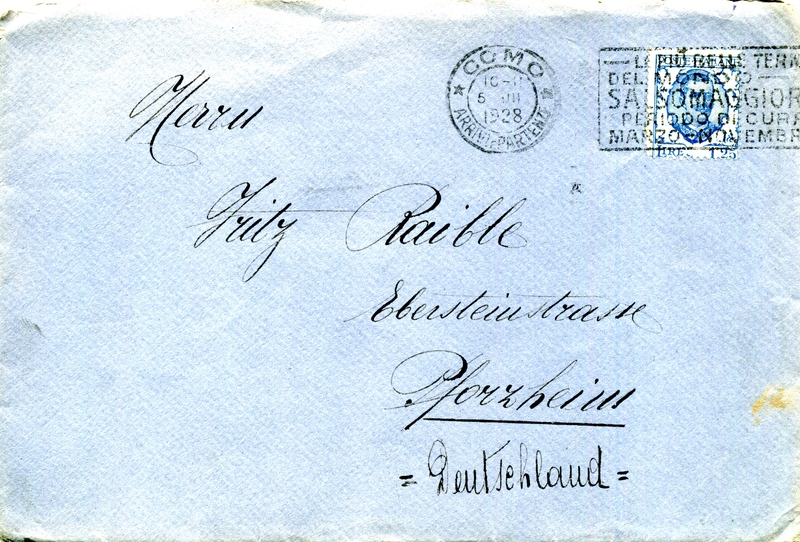 COMO
10-11
5 III
1928
ARRIVI E PARTENZE
LE PIÙ BELLE TERM
DEL MONDO
SALSOMAGGIOR
PERIODO DI CURA
MARZO-NOVEMBR
LIRE 1,25
Herrn
Fritz Raible
Ebersteinstrasse
Pforzheim
= Deutschland =